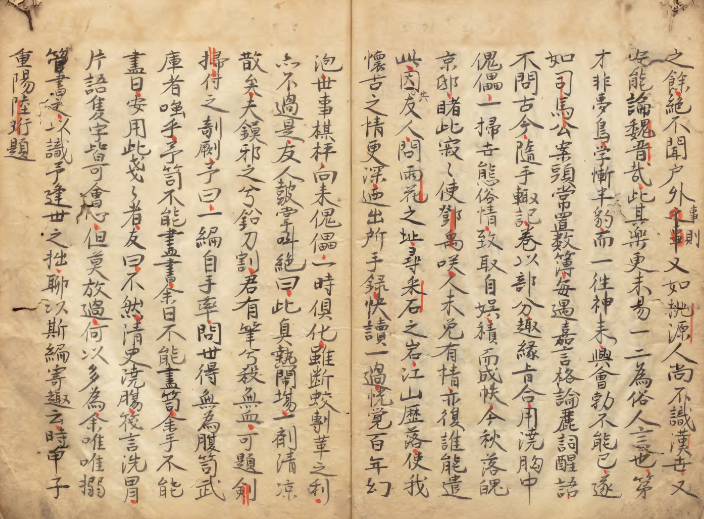 之餘絕不聞戶外事則又如桃源人尚不識漢世又
安能論魏晋哉此其樂更未易一二為俗人言也第
才非夢鳥學慚半豹而一往神来興會勃不能已遂
如司馬公案頭常置數簿每遇嘉言格論麗詞醒語
不問古今隨手輙記卷以部分趣緣旨合用澆胸中
傀儡一掃世態俗情致取自娯積而成帙今秋落魄
京邸睹此寂寂使鄧禹咲人未免有情亦復誰能遣
此因共友人問雨花之址尋采石之岩江山歷落使我
懷古之情更深迺出所手録快讀一過恍覺百年幻
泡世事棋枰向来傀儡一時俱化雖斷蛟剸革之利
亦不過是友人皷掌叫絕曰此真熱鬧場一劑清凉
散矣夫鏌邪之兮鉛刀割君有筆兮殺無血可題劍
掃付之剞劂予曰一編自手率問世得無為腹笥武
庫者嗤乎予笥不能盡書余目不能盡笥余手不能
盡目安用此戔戔者友曰不然清史澆腸筏言洗胃
片語隻字皆可會心但莫放過何以多為余唯唯搦
管書之以識予逢世之拙聊以斯編寄趣云時甲子
重陽陸珩題